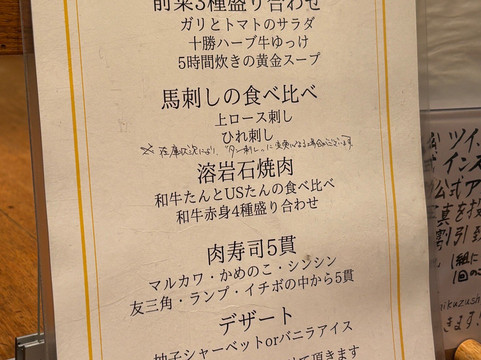 前菜3種盛り合わせ
ガリとトマトのサラダ
十勝ハーブ牛ゆっけ
5時間炊きの黄金スープ
馬刺しの食べ比べ
上ロース刺し
ひれ刺し
※在庫状況により、"タン刺し"に変更になる場合がございます
溶岩石焼肉
和牛たんとUSたんの食べ比べ
和牛赤身4種盛り合わせ
肉寿司5貫
マルカワ・かめのこ・シンシン
友三角・ランプ・イチボの中から5貫
デザート
柚子シャーベットorバニラアイス
て頂きます
ツイ
インス
公式ア
真を投
割引致
1組に
1回の
ikazush
きます!